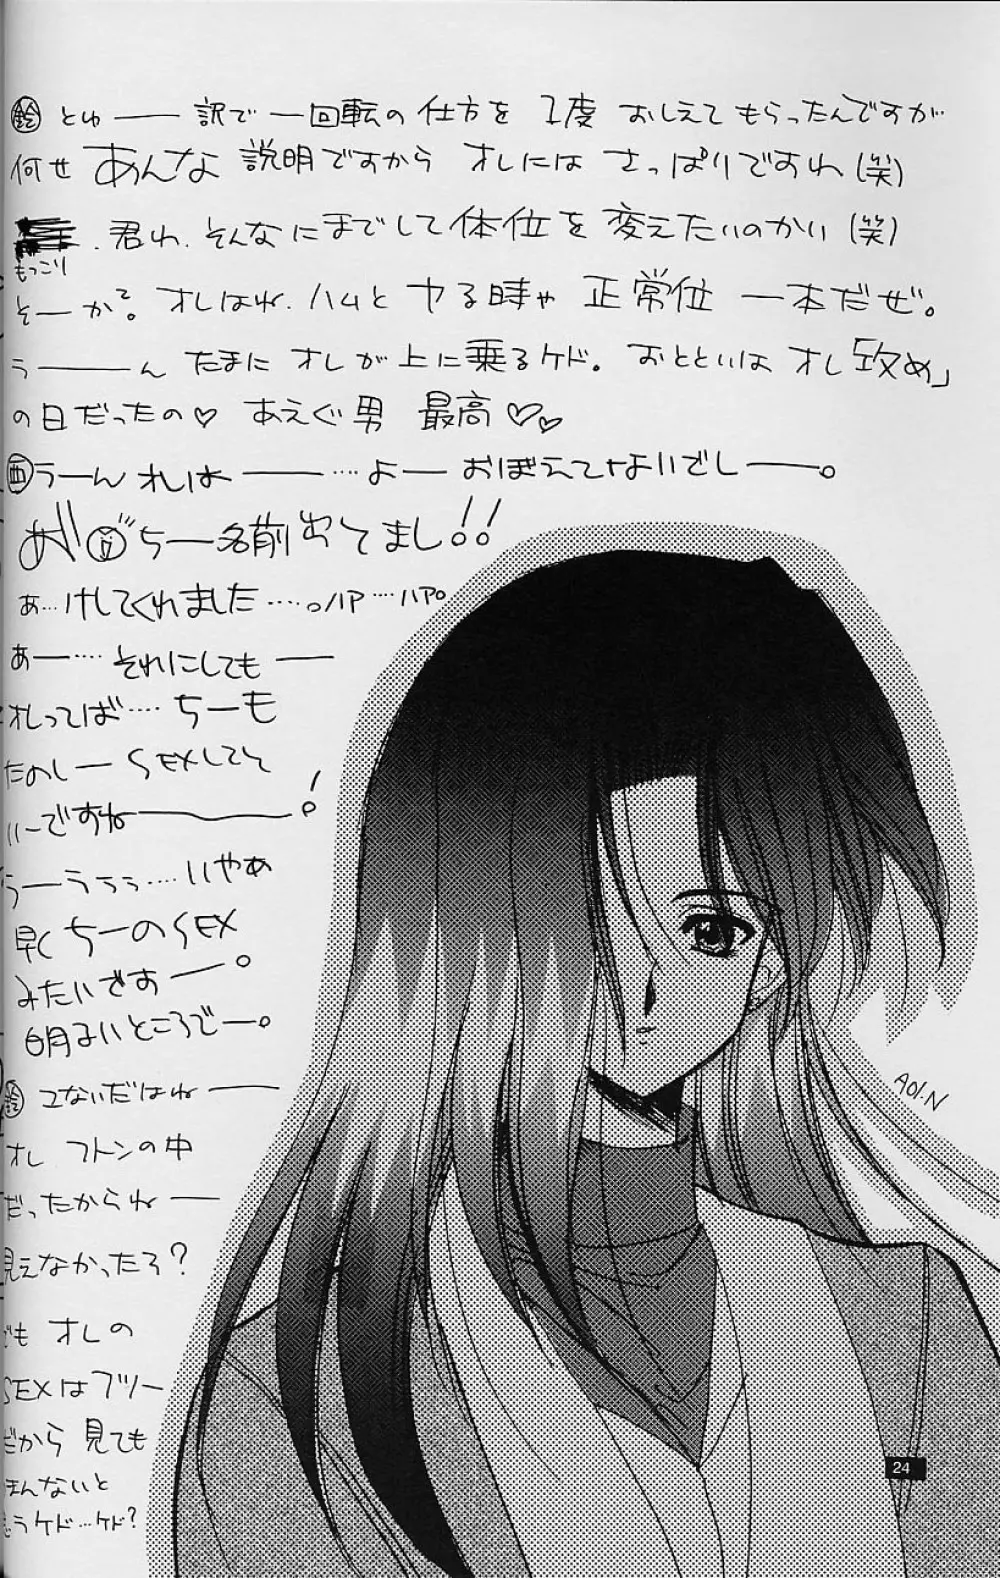 鈴 とゆ——訳で一回転の仕方を1度おしえてもらったんですが…
何せあんな説明ですからオレにはさっぱりですわ(笑)
君わ、そんなにまでして体位を変えたいのかい(笑)
もっこり
そーか。オレはね、ハムとヤる時ゃ正常位一本だぜ。
う———んたまにオレが上に乗るケド。おとといはオレ「攻め」
の日だったの♡あえぐ男最高♡♡
西 うーんオレは———…よ—おぼえてないでし——。
ちー名前出てまし!!
あ…けしてくれました…。ハア…ハア。
あー…それにしても—
オレってば…ちーも
たのしーSEXしてそ
いーですね———!
うーううう…いやあ
早くちーのSEX
みたいですー。
明よいところでー。
鈴 こないだはね——
オレ フトンの中
だったからね—
見えなかったろ?
でも オレの
SEXはフツー
だから見ても
ほんないと
もうケド…ケド?
AOI.N
24